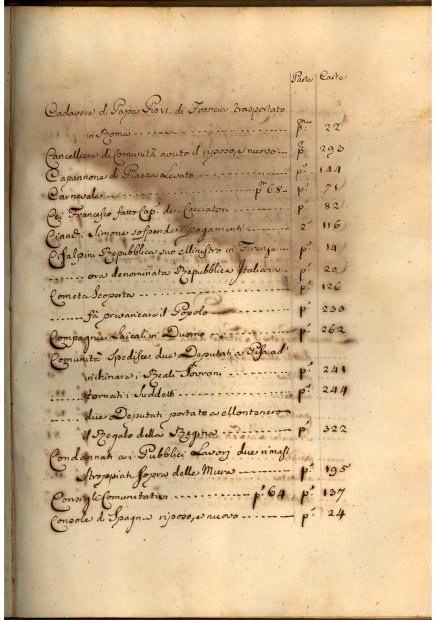 Parte Carte
Cadavere di Papa Pio VI. di Francia trasportato
in Roma p.ma 22
Cancelliere di Comunità avuto il riposo, e nuovo p.a 293
Capannone di Piazza Levato p.a 144
Carnevale p.ma 68 p.a 71
Cei Francesco fatto Cap. de i Cacciatori p.a 82
Simone sospende i pagamenti 2.a 116
Cisalpina Repubblica suo Ministro in Firenze p.a 14
ora denominata Repubblica Italiana p.a 20
Cometa Scoperta p.a 126
fà il Popolo p.a 230
Compagnie Laicali in Duomo p.a 262
Comunità Spedisce due Deputati a Pisa ad
inchinare i Reali Sovrani p.a 241
tornati i Suddetti p.a 244
due Deputati portato a
il Regalo della Regina p.a 322
Condannati a i Pubblici Lavori due rimasti
Stroppiati Sopra delle Mura p.a 195
Consigli Comunitativi p.a 64 p.a 137
Console di Spagna riposo, e nuovo p.a 24